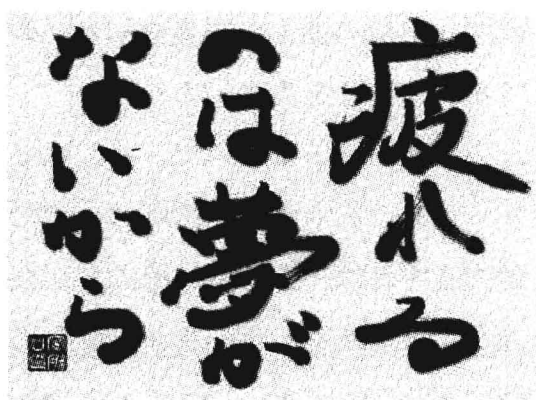 疲れる
のは夢が
ないから